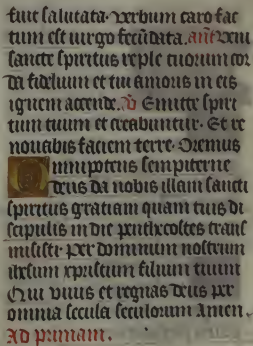 fuit salutata. verbum caro fac
tum est uirgo fecūdata. an̄t Veni
sancte spiritus reple tuorum cor
da fidelium et tui amoris in eis
ignem accende. Emitte spiri
tum tuum et creabuntur. Et re
nouabis faciem terre. Oremus
Omnipotens sempiterne
deus da nobis illam sancti
spiritus gratiam quam tuis di
scipulis in die penthecostes trans
misisti. Per dominum nostrum
ihesum xpristum filium tuum
Qui viuis et regnas deus per
omnia secula seculorum Amen.
Ad primam.